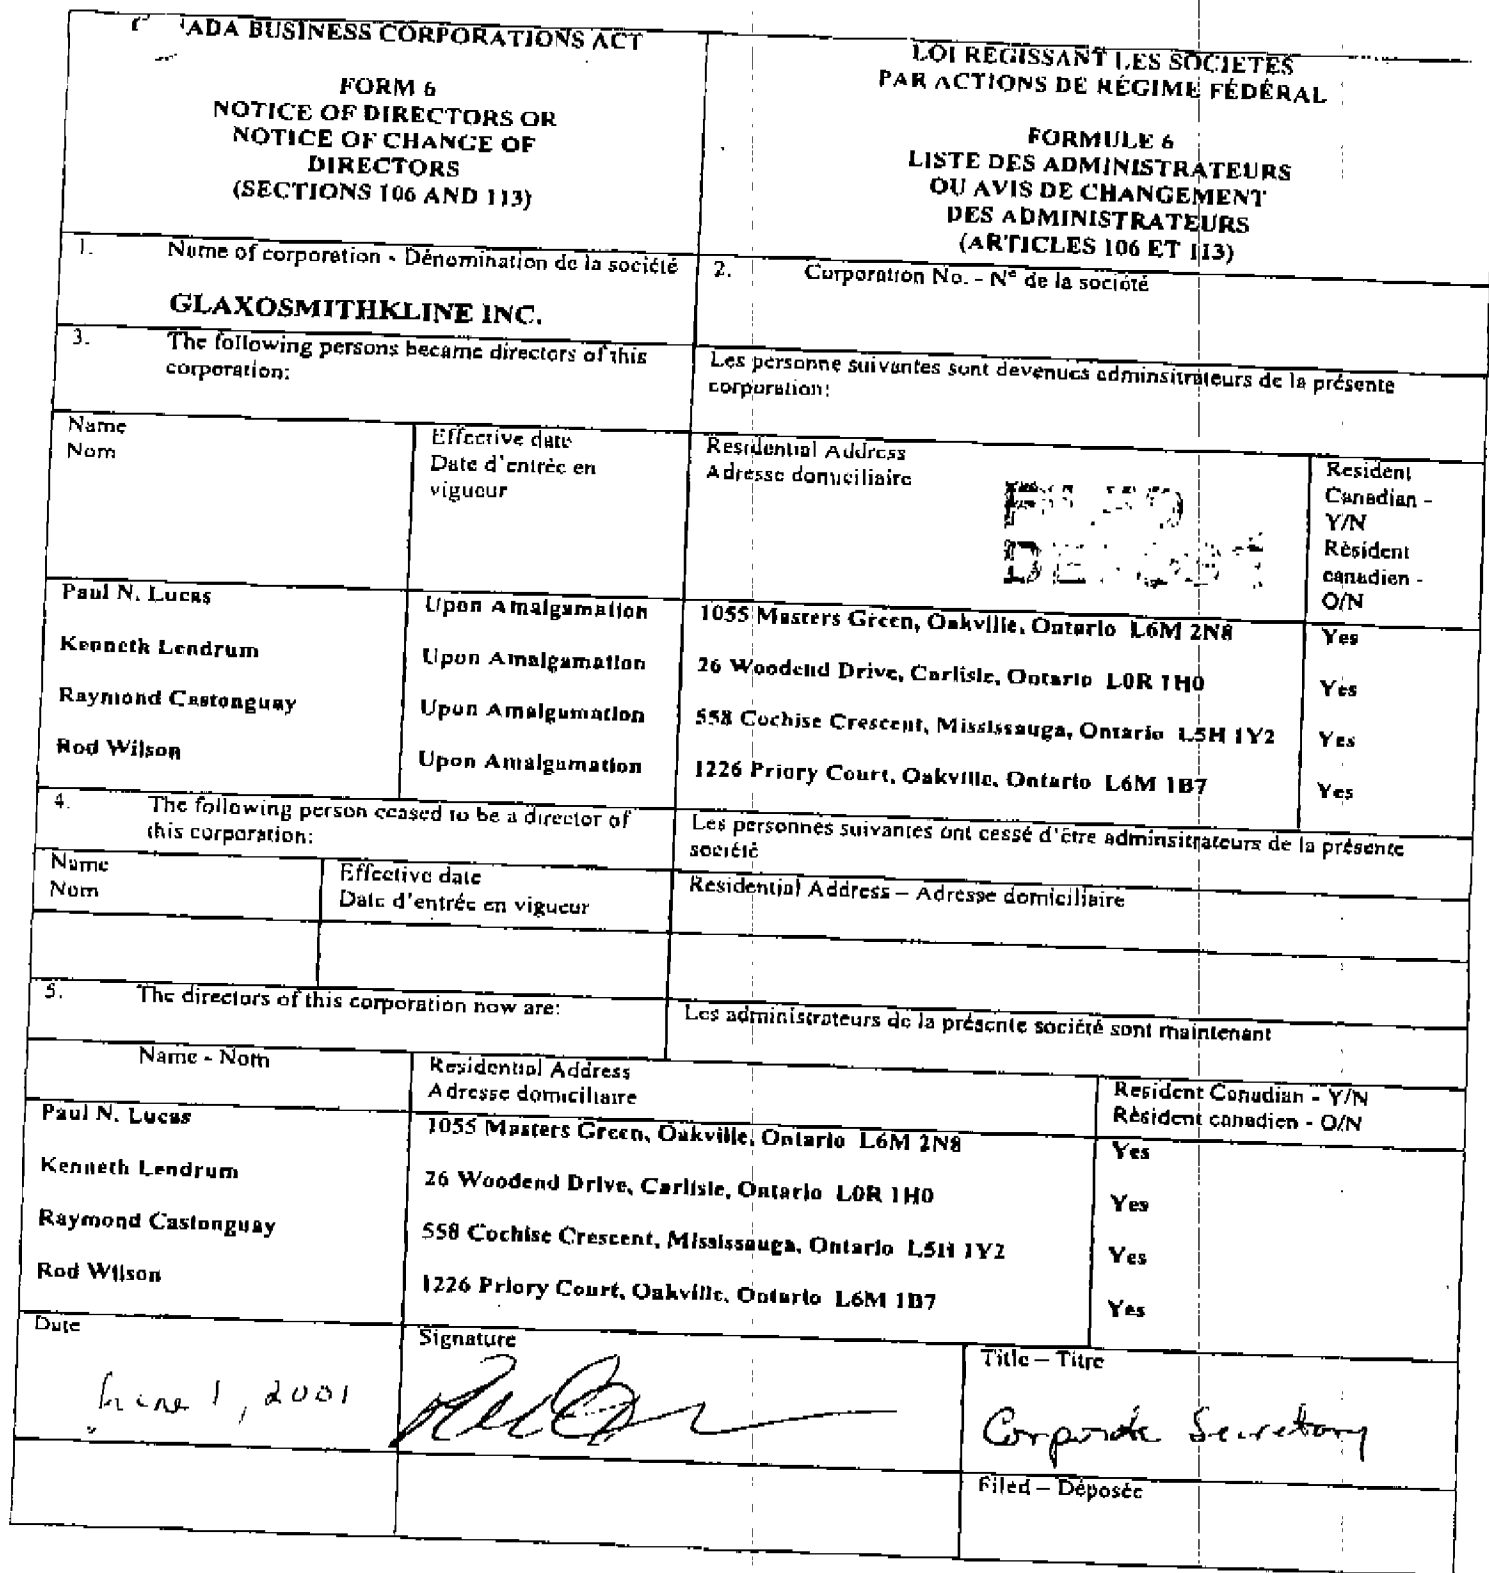 ADA BUSINESS CORPORATIONS ACT
FORM 6
NOTICE OF DIRECTORS OR
NOTICE OF CHANGE OF
DIRECTORS
(SECTIONS 106 AND 113)
LOI REGISSANT LES SOCIETES
PAR ACTIONS DE RÉGIME FÉDÉRAL
FORMULE 6
LISTE DES ADMINISTRATEURS
OU AVIS DE CHANGEMENT
DES ADMINISTRATEURS
(ARTICLES 106 ET 113)
1. Name of corporation - Dénomination de la société
GLAXOSMITHKLINE INC.
2. Corporation No. - N° de la société
3. The following persons became directors of this
corporation:
Les personne suivantes sont devenues adminsitrateurs de la présente
corporation:
Name
Nom
Effective date
Date d'entrée en
vigueur
Residential Address
Adresse domiciliaire
Resident
Canadian -
Y/N
Résident
canadien -
O/N
Paul N. Lucas Upon Amalgamation 1055 Masters Green, Oakville, Ontario L6M 2N8 Yes
Kenneth Lendrum Upon Amalgamation 26 Woodend Drive, Carlisle, Ontario L0R 1H0 Yes
Raymond Castonguay Upon Amalgamation 558 Cochise Crescent, Mississauga, Ontario L5H 1Y2 Yes
Rod Wilson Upon Amalgamation 1226 Priory Court, Oakville, Ontario L6M 1B7 Yes
4. The following person ceased to be a director of
this corporation:
Les personnes suivantes ont cessé d'être adminsitrateurs de la présente
société
Name
Nom
Effective date
Date d'entrée en vigueur
Residential Address – Adresse domiciliaire
5. The directors of this corporation now are:
Les administrateurs de la présente société sont maintenant
Name - Nom
Residential Address
Adresse domiciliaire
Resident Canadian - Y/N
Résident canadien - O/N
Paul N. Lucas 1055 Masters Green, Oakville, Ontario L6M 2N8 Yes
Kenneth Lendrum 26 Woodend Drive, Carlisle, Ontario L0R 1H0 Yes
Raymond Castonguay 558 Cochise Crescent, Mississauga, Ontario L5H 1Y2 Yes
Rod Wilson 1226 Priory Court, Oakville, Ontario L6M 1B7 Yes
Date
June 1, 2001
Signature
Title – Titre
Corporate Secretary
Filed – Déposée